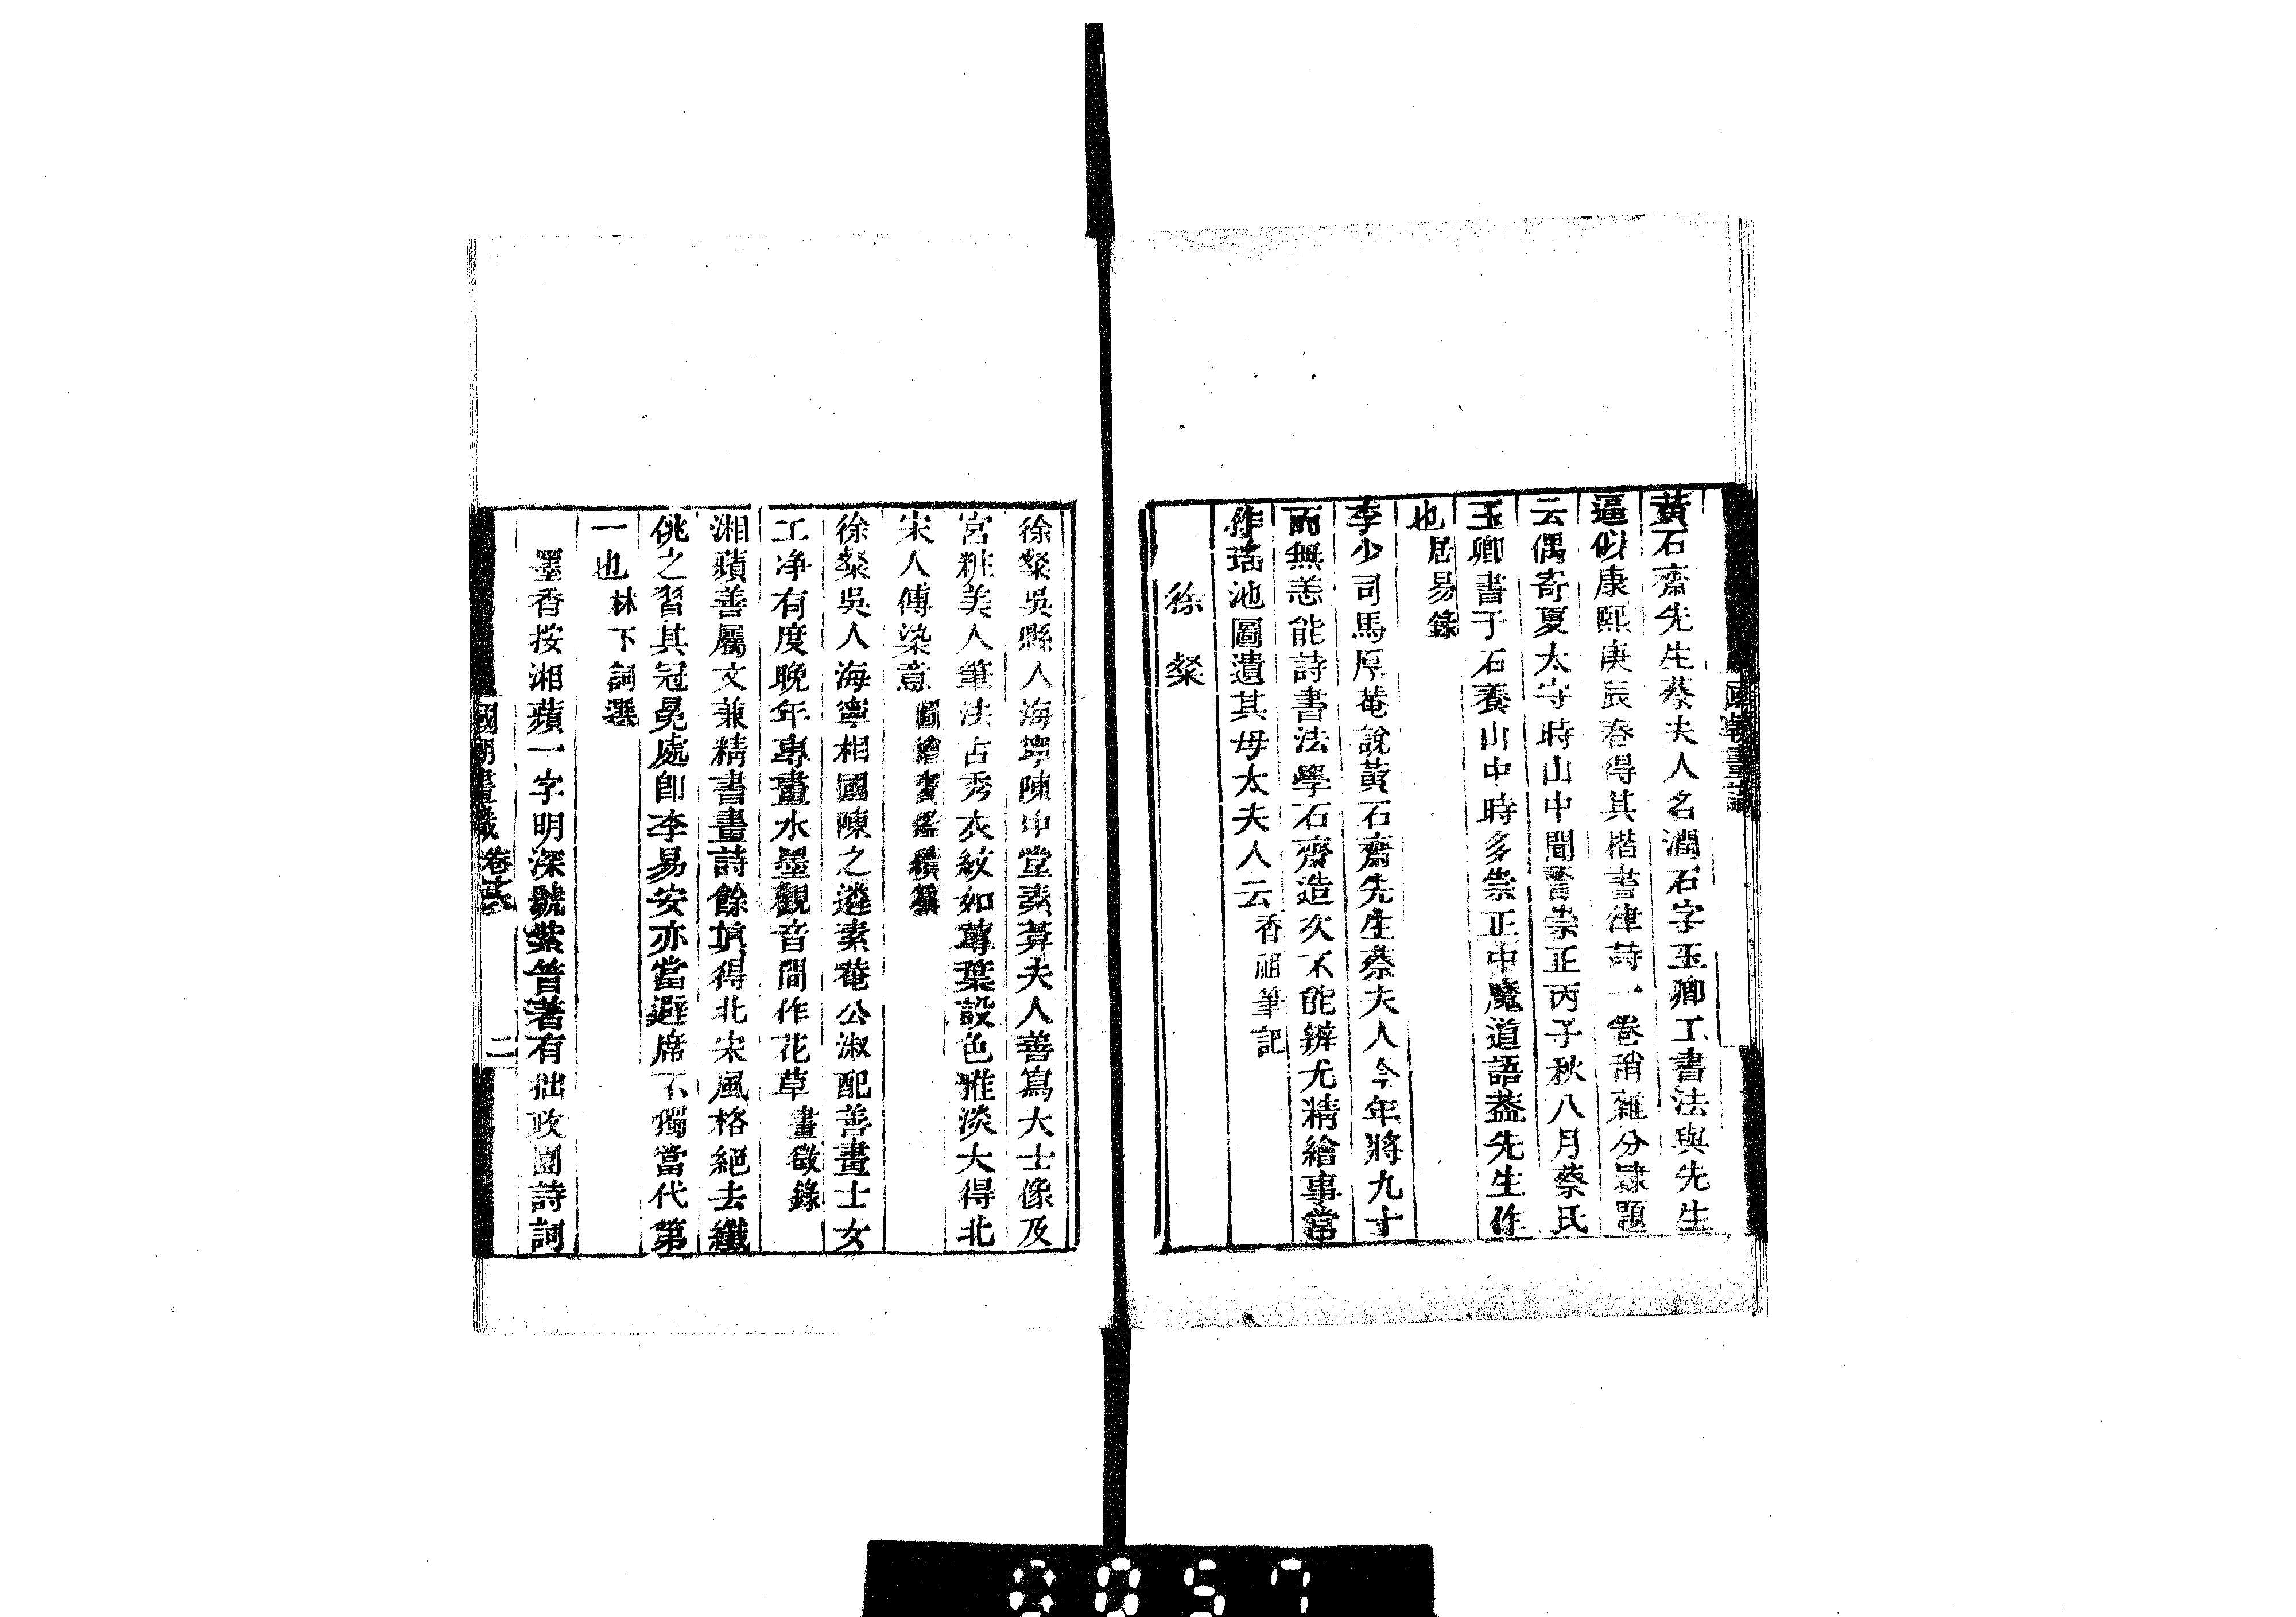 黃石齋先生蔡夫人名潤石字玉卿工書法與先生
逼似康熙庚辰春得其楷書律詩一卷稍雜分隸題
云偶寄夏太守時山中聞警崇正丙子秋八月蔡氏
玉卿書于石養山中時多崇正中魔道語葢先生作
也居易錄
李少司馬厚菴說黃石齋先生蔡夫人今年將九十
而無恙能詩書法學石齋造次不能辨尤精繪事常
作瑤池圖遺其母太夫人云香祖筆記
徐粲
徐粲吳縣人海寧陳中堂素菴夫人善寫大士像及
宮粧美人筆法古秀衣紋如蓴葉設色雅淡大得北
宋人傅染意圖繪寶鑑續纂
徐粲吳人海寧相國陳之遴素菴公淑配善畫士女
工净有度晚年專畫水墨觀音間作花草畫徵錄
湘蘋善屬文兼精書畫詩餘真得北宋風格絕去纖
佻之習其冠冕處卽李易安亦當避席不獨當代第
一也林下詞選
墨香按湘蘋一字明深號紫䇯著有拙政園詩詞
國朝畫識 卷十六 二
0057